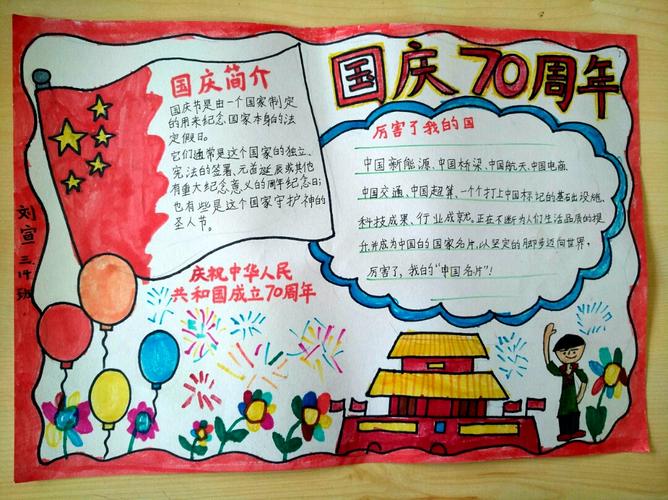 国庆70周年
国庆简介
国庆节是由一个国家制定
的用来纪念国家本身的法
定假日。
它们通常是这个国家的独立、
宪法的签署、元首诞辰或其他
有重大纪念意义的周年纪念日;
也有些是这个国家守护神的
圣人节。
庆祝中华人民
共和国成立70周年
厉害了我的国
中国新能源、中国桥梁、中国航天、中国电商、
中国交通、中国超算、一个个打上中国标记的基础设施、
科技成果、行业成就,正在不断为人们生活品质的提
升,并成为中国的国家名片,以坚定的脚步迈向世界,
厉害了,我的“中国名片”!
刘宣 三.14班